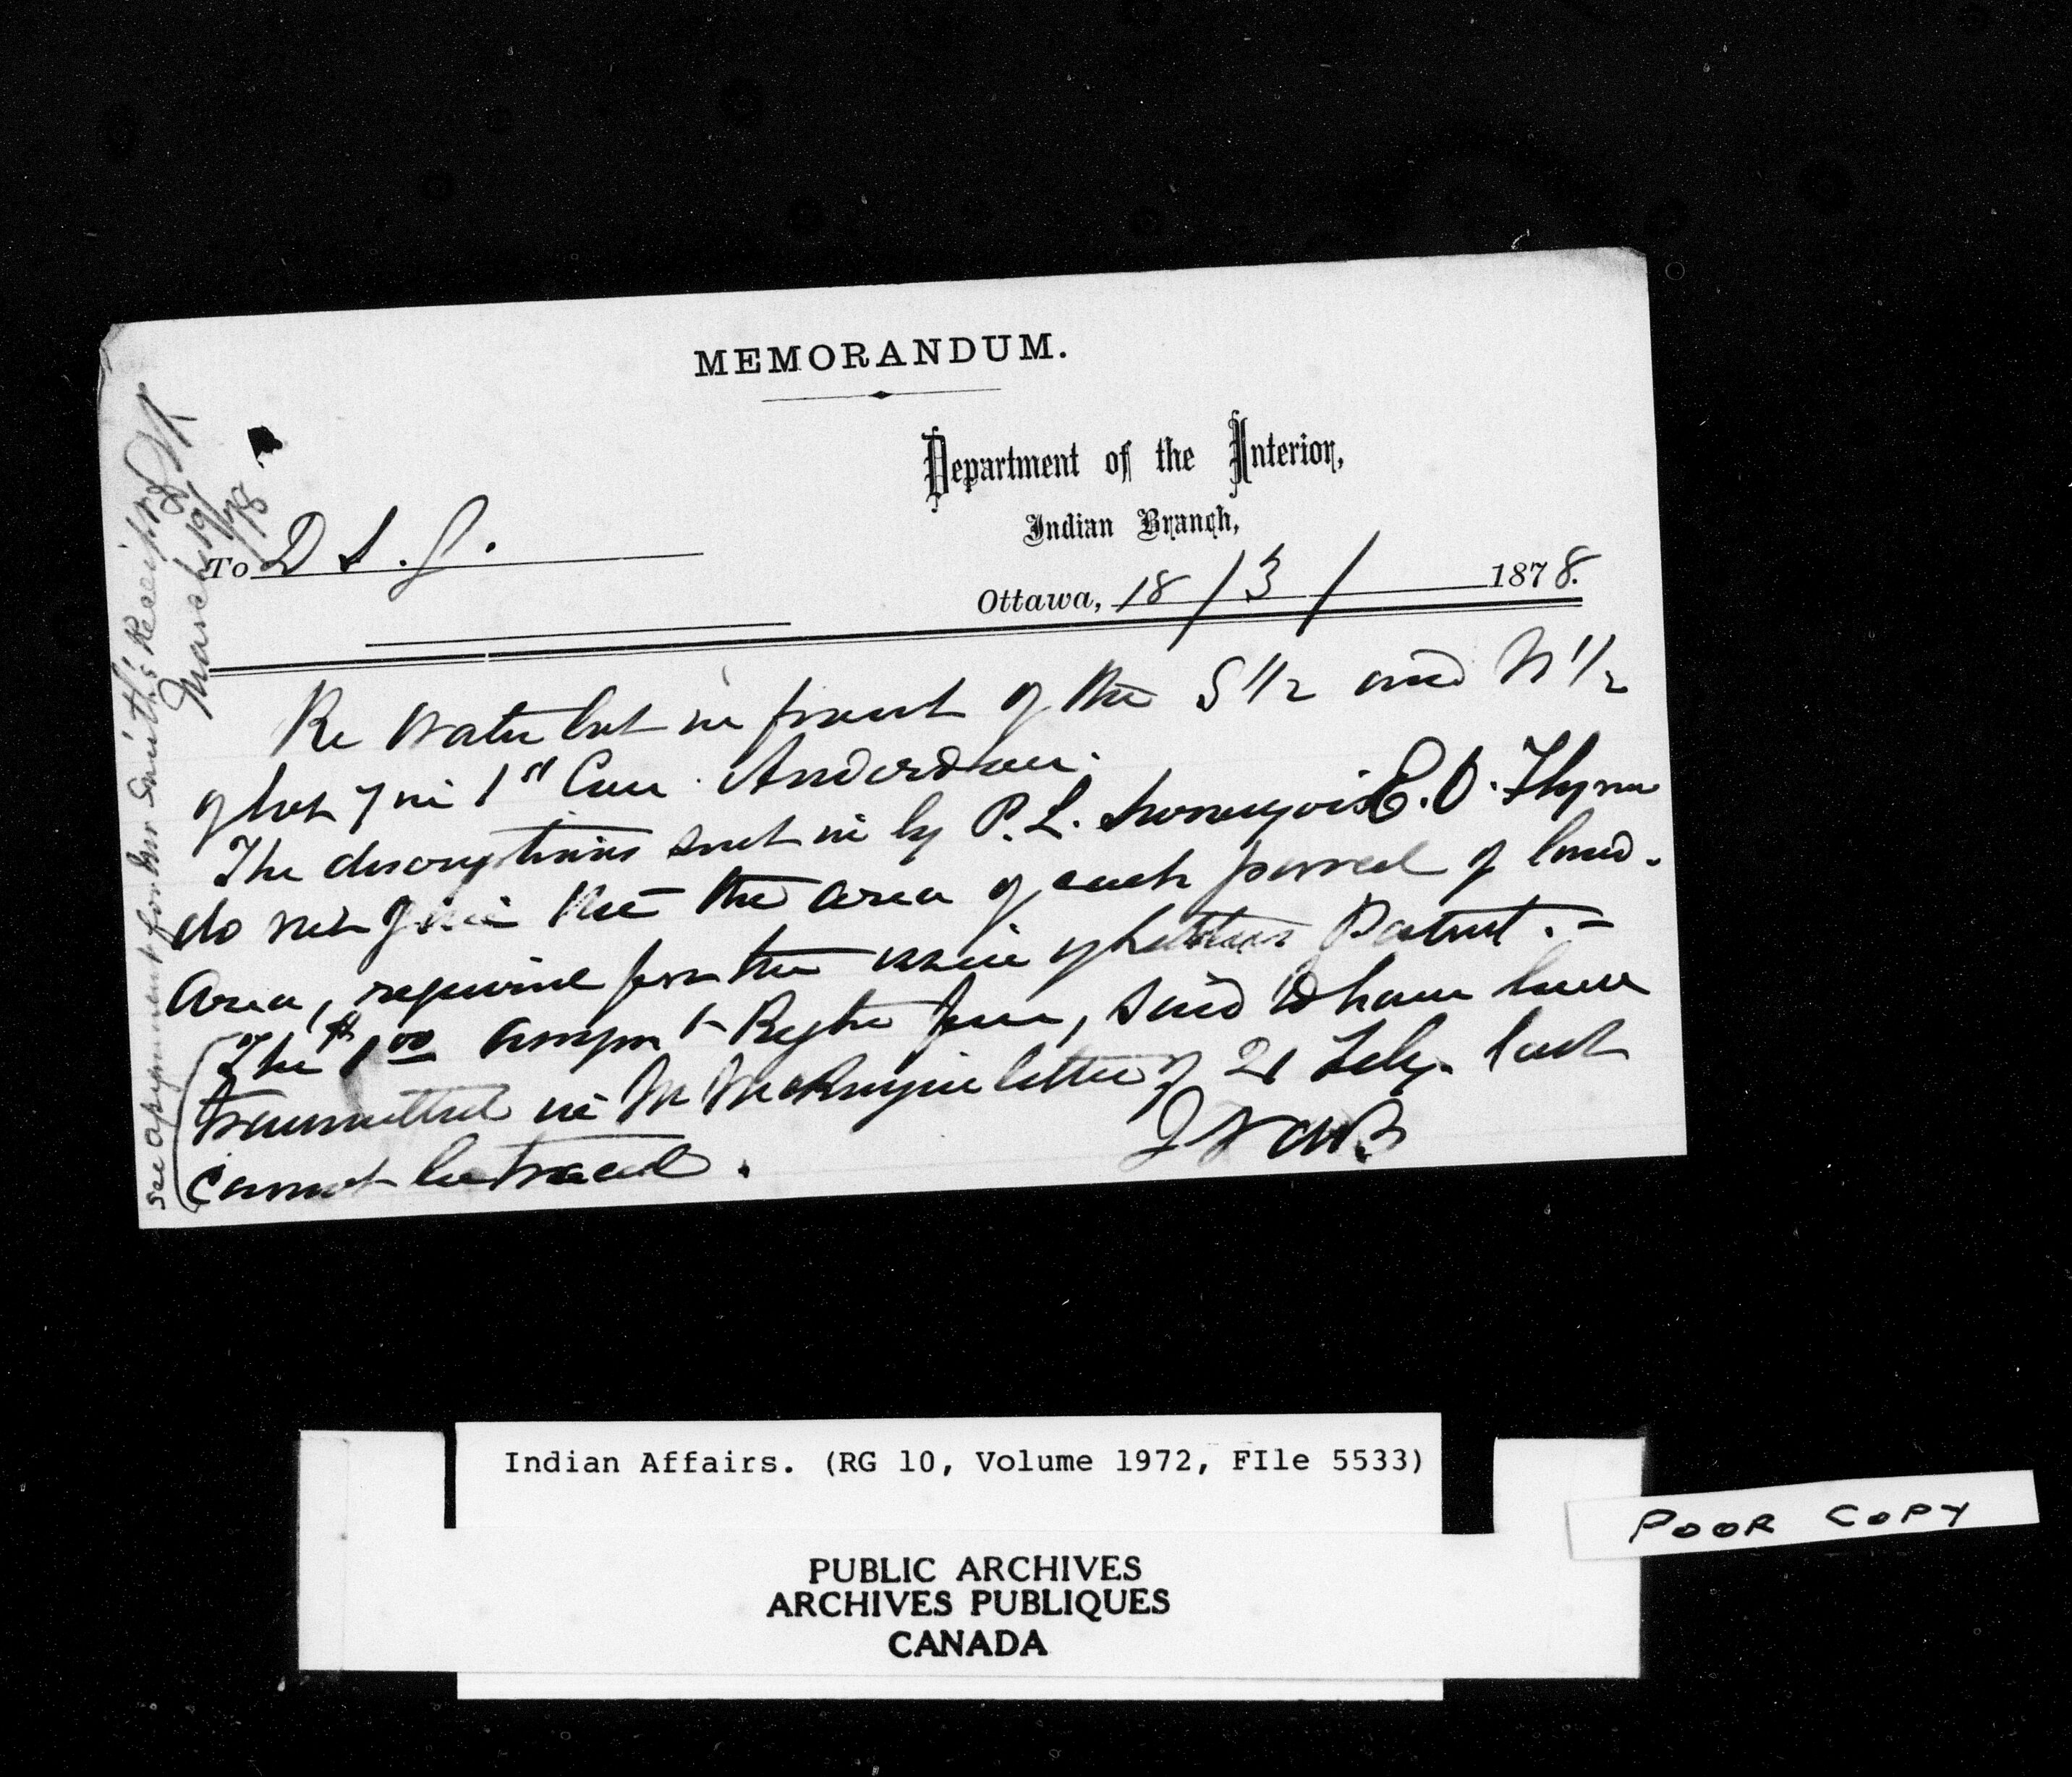 MEMORANDUM.
Department of the Interior,
Indian Branch,
To D S. G.
Ottawa, 18/3/ 1878.
Re Water lot in front of the S 1/2 and N 1/2
of lot 7 in 1st Con. Anderdon.
The descriptions sent in by P.L.S E. O. Flynn
do not give the area of each parcel of land.
Area, required for the issue of Letters Patent. -
The $1.00 assgn't Regtn fee, said to have been
transmitted in Mr letter of 21 Feby. last
cannot be traced.
see assignment for Mr Smith's Receipt
March 19/78
Indian Affairs. (RG 10, Volume 1972, FIle 5533)
PUBLIC ARCHIVES
ARCHIVES PUBLIQUES
CANADA
POOR COPY